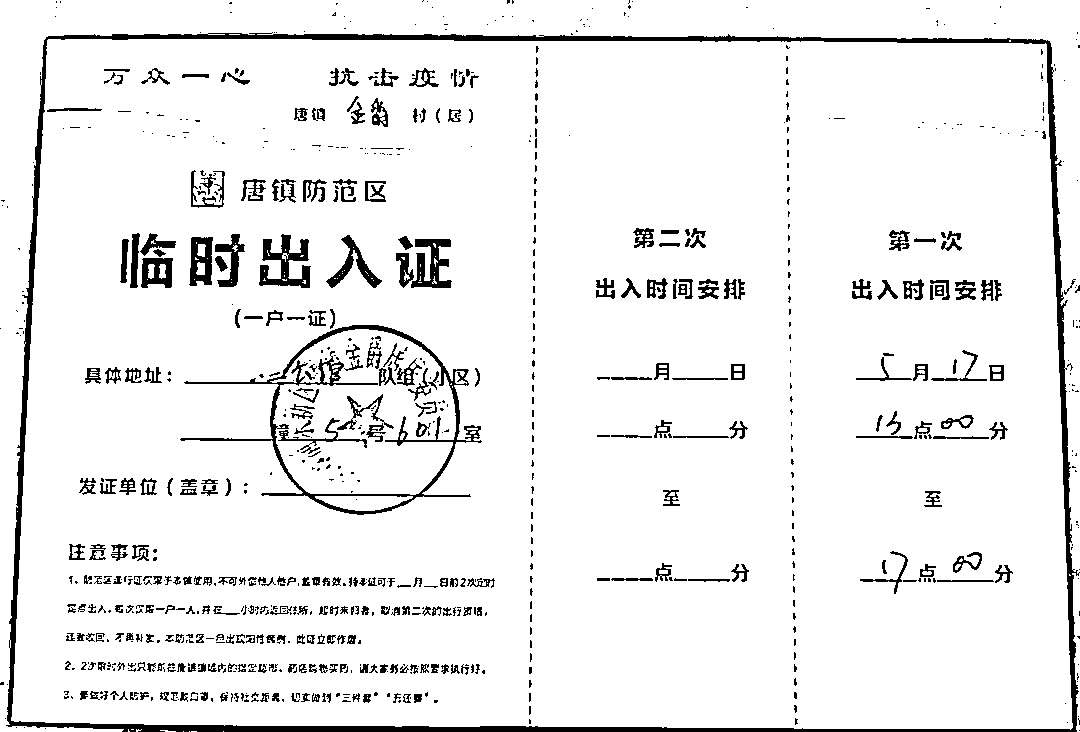 万众一心 抗击疫情
唐镇 金爵 村（居）
唐镇防范区
临时出入证
（一户一证）
具体地址： 队组（小区）
幢 5 号 601 室
发证单位（盖章）：
注意事项：
1、防范区通行证仅限于本镇使用，不可外借他人他户，盖章有效。持本证可于___月___日前2次定时
定点出入。每次仅限一户一人，并在___小时内返回住所，超时未归者，取消第二次的出行资格，
证件收回，不再补发。本防范区一旦出现阳性病例，此证立即作废。
2、2次限时外出只能前往唐镇镇域内的指定超市、药店购物买药，请大家务必按照要求执行好。
3、要做好个人防护，规范戴口罩，保持社交距离，切实做到“三件套”“五还要”。
第二次
出入时间安排
月 日
点 分
至
点 分
第一次
出入时间安排
5 月 17 日
15 点 00 分
至
17 点 00 分